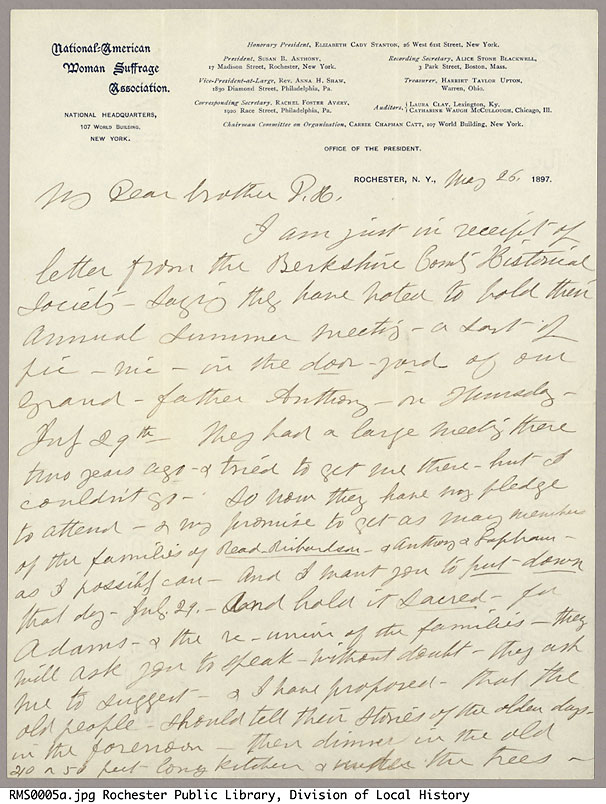 National-American
Woman Suffrage
Association.
NATIONAL HEADQUARTERS,
107 WORLD BUILDING,
NEW YORK.
Honorary President, ELIZABETH CADY STANTON, 26 West 61st Street, New York.
President, SUSAN B. ANTHONY,
17 Madison Street, Rochester, New York.
Vice-President-at-Large, REV. ANNA H. SHAW,
1830 Diamond Street, Philadelphia, Pa.
Corresponding Secretary, RACHEL FOSTER AVERY,
1920 Race Street, Philadelphia, Pa.
Recording Secretary, ALICE STONE BLACKWELL,
3 Park Street, Boston, Mass.
Treasurer, HARRIET TAYLOR UPTON,
Warren, Ohio.
Auditors, { LAURA CLAY, Lexington, Ky.
CATHARINE WAUGH MCCULLOUGH, Chicago, Ill.
Chairman Committee on Organization, CARRIE CHAPMAN CATT, 107 World Building, New York.
OFFICE OF THE PRESIDENT.
ROCHESTER, N. Y., May 26. 1897.
My Dear brother D.R.
I am just in receipt of
letter from the Berkshire County Historical
Society - saying they have voted to hold their
annual summer meeting - a sort of
pic - nic - in the door-yard of our
grand - father Anthony - on Thursday -
July 29th - They had a large meeting there
two years ago - & tried to get me there - but I
couldn't go - So now they have my pledge
to attend - & my promise to get as many members
of the families of Read - Richardson - & Anthony & Lapham -
as I possibly can - And I want you to put-down
that day - July, 29. - and hold it sacred - for
Adams - & the re-union of the families - they
will ask you to speak - without doubt - they ask
me to suggest - & I have proposed - that the
old people - should tell their stories of the olden days -
in the forenoon - then dinner in the old
40 or 50 feet long kitchen & under the trees -
RMS0005a.jpg Rochester Public Library, Division of Local History